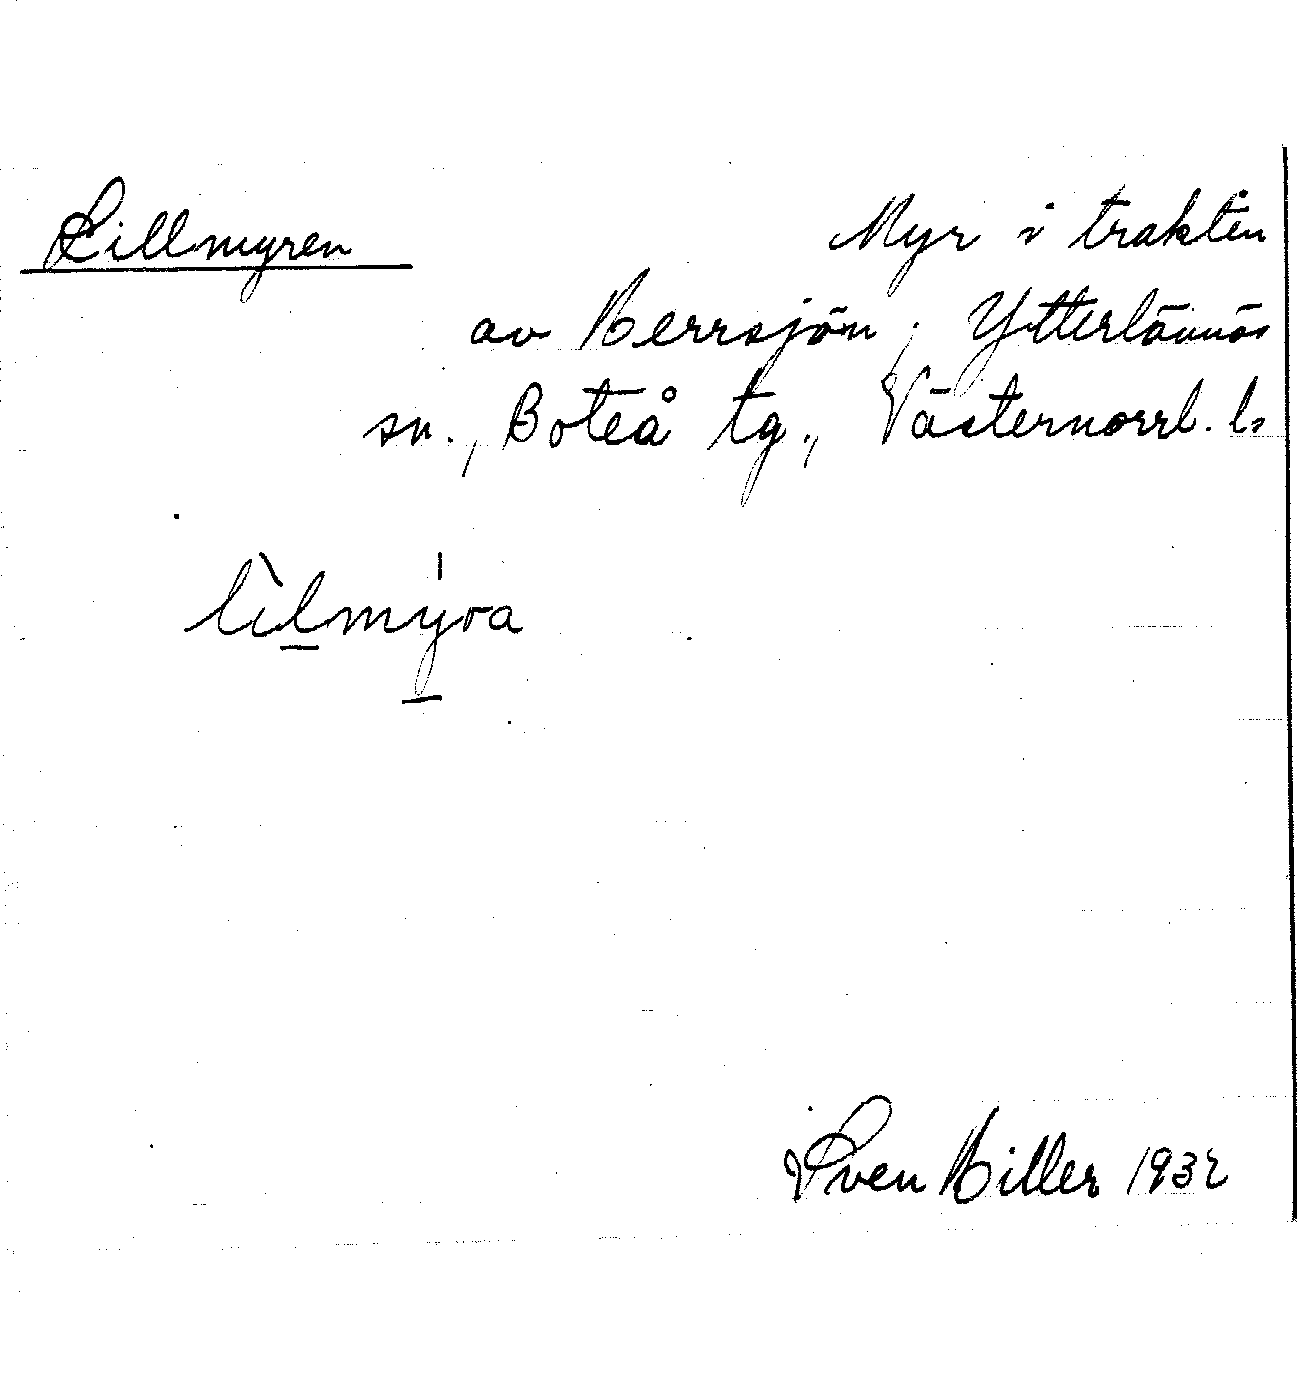 Lillmyren Myr i trakten
av Herrsjön, Ytterlännäs
sn., Boteå tg., Västernorrl. l.
lìlmy̍ra
Sven Hiller 1932